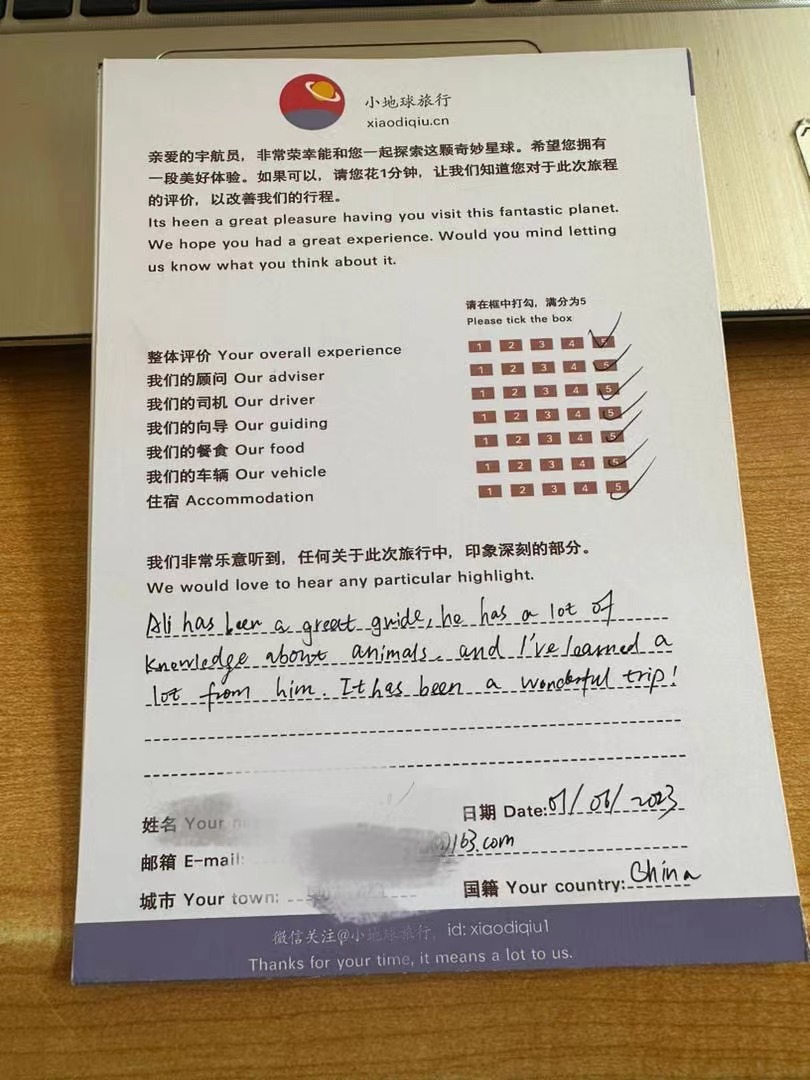 小地球旅行
xiaodiqiu.cn
亲爱的宇航员，非常荣幸能和您一起探索这颗奇妙星球。希望您拥有
一段美好体验。如果可以，请您花1分钟，让我们知道您对于此次旅程
的评价，以改善我们的行程。
Its heen a great pleasure having you visit this fantastic planet.
We hope you had a great experience. Would you mind letting
us know what you think about it.
请在框中打勾，满分为5
Please tick the box
整体评价 Your overall experience 1 2 3 4 5
我们的顾问 Our adviser 1 2 3 4 5
我们的司机 Our driver 1 2 3 4 5
我们的向导 Our guiding 1 2 3 4 5
我们的餐食 Our food 1 2 3 4 5
我们的车辆 Our vehicle 1 2 3 4 5
住宿 Accommodation 1 2 3 4 5
我们非常乐意听到，任何关于此次旅行中，印象深刻的部分。
We would love to hear any particular highlight.
Ali has been a great guide, he has a lot of
knowledge about animals, and I've learned a
lot from him. It has been a wonderful trip!
姓名 Your 日期 Date: 01/06/2023
邮箱 E-mail: @163.com
城市 Your town: 国籍 Your country: China
微信关注@小地球旅行，id: xiaodiqiu1
Thanks for your time, it means a lot to us.